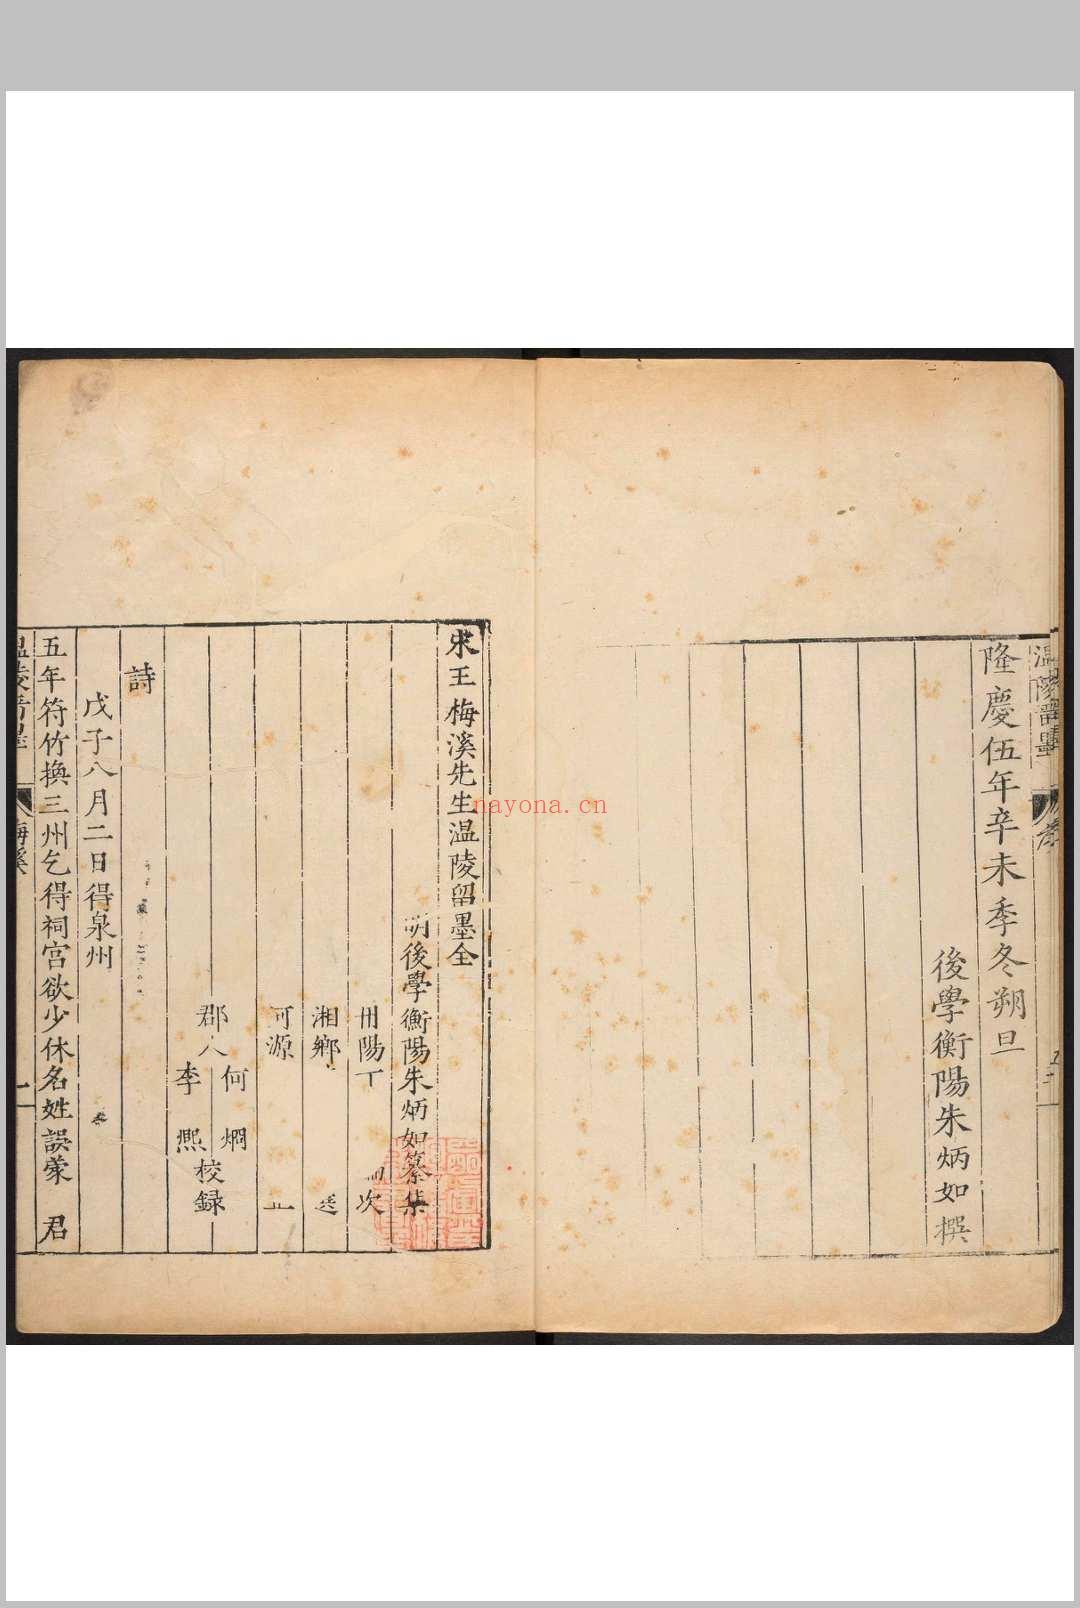 温陵留墨
隆慶伍年辛未季冬朔旦
後學衡陽朱炳如撰
宋王梅溪先生温陵留墨全
明後學衡陽朱炳如纂集
丹陽丁
次
湘鄉
河源
郡人
何烱
李熈
校録
詩
戊子八月二日得泉州
五年符竹換三州乞得祠宫欲少休名姓誤蒙 君
温陵留墨
梅溪
一
nayona.cn